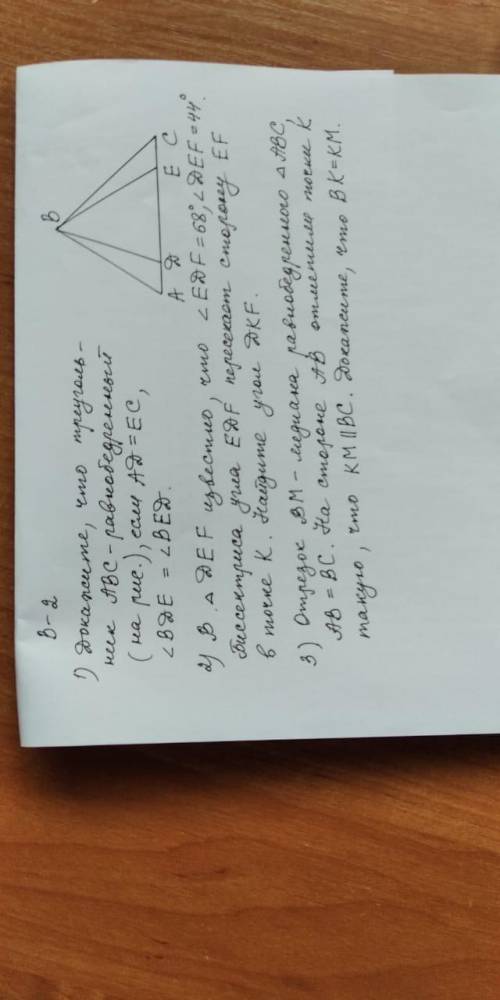 В-2
1) Докажите, что треуголь-
ник ABC - равнобедренный
(на рис.), если AD=EC,
∠BDE = ∠BED.
B
A D E C
2) В △DEF известно, что ∠EDF=68°, ∠DEF=44°.
Биссектриса угла EDF пересекает сторону EF
в точке K. Найдите угол DKF.
3) Отрезок BM - медиана равнобедренного △ABC,
AB=BC. На стороне AB отметили точку K
такую, что KM||BC. Докажите, что BK=KM.